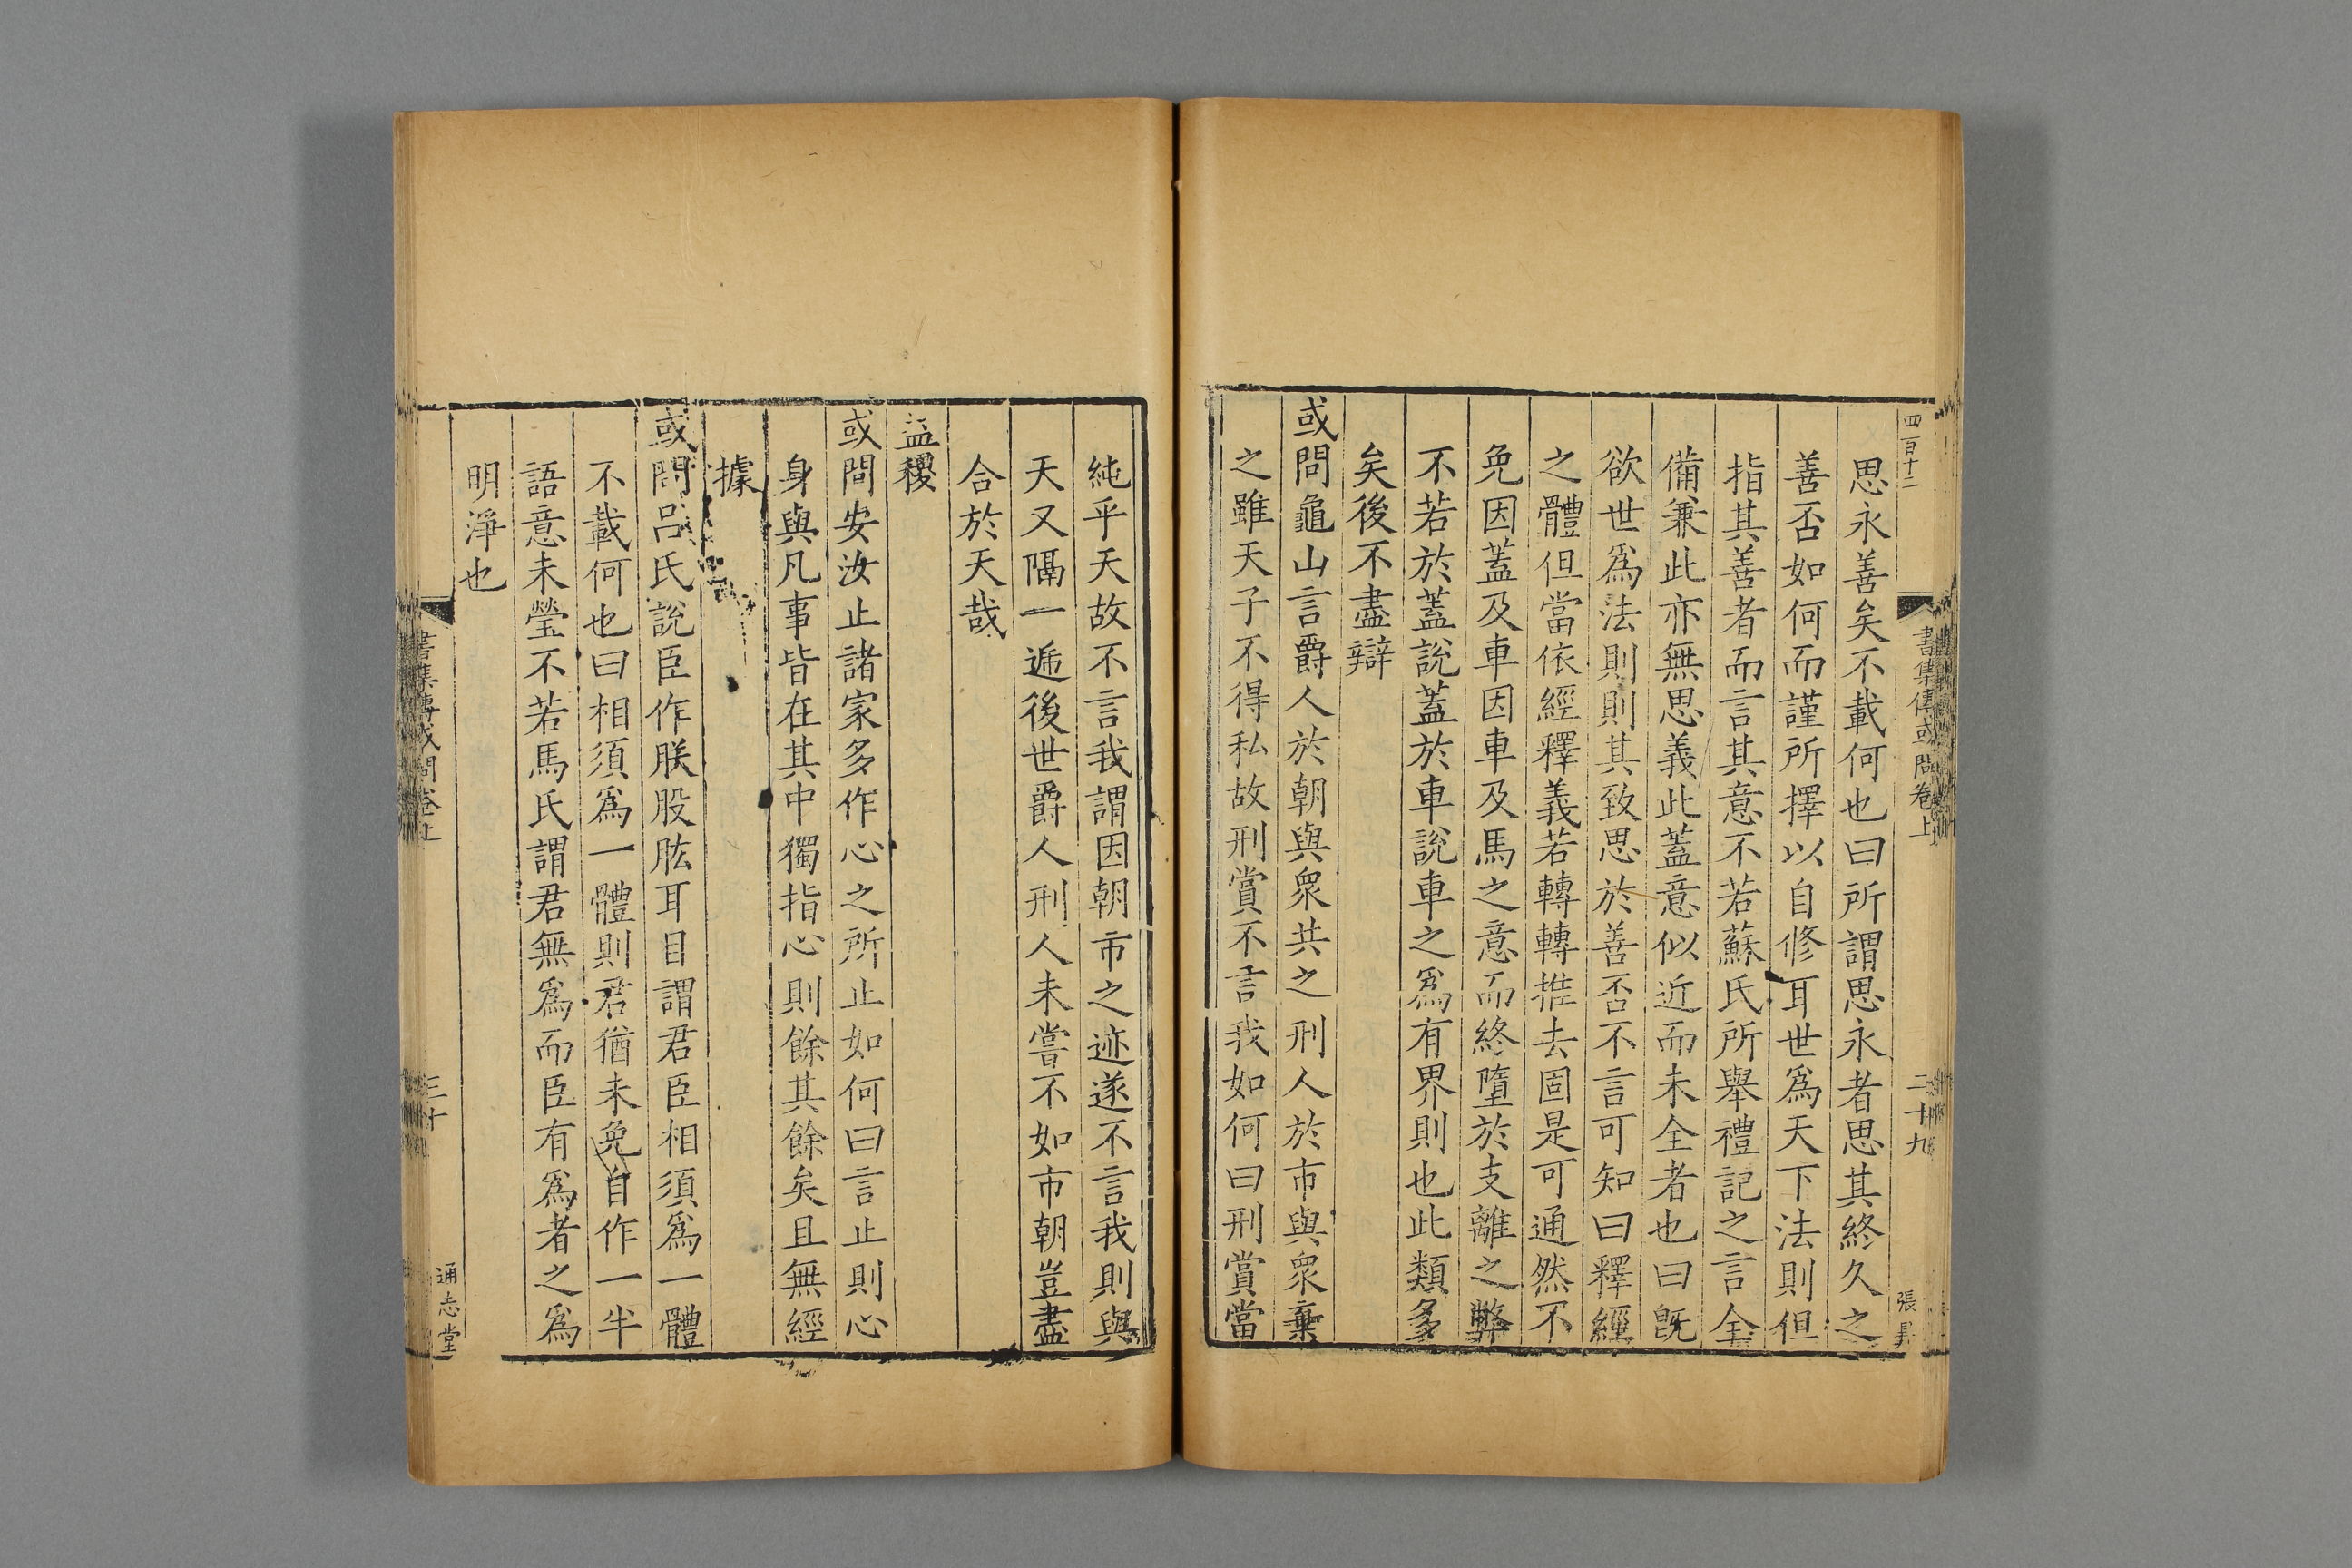 四百十二
書集傳或問卷上
二十九
張昇
思永善矣不載何也曰所謂思永者思其終久之
善否如何而謹所擇以自修耳世爲天下法則但
指其善者而言其意不若蘇氏所舉禮記之言全
備兼此亦無思義此蓋意似近而未全者也曰旣
欲世爲法則則其致思於善否不言可知曰釋經
之體但當依經釋義若轉轉推去固是可通然不
免因蓋及車因車及馬之意而終墮於支離之弊
不若於蓋說蓋於車說車之爲有界則也此類多
矣後不盡辯
或問龜山言爵人於朝與衆共之刑人於市與衆棄
之雖天子不得私故刑賞不言我如何曰刑賞當
純乎天故不言我謂因朝市之迹遂不言我則與
天又隔一遞後世爵人刑人未嘗不如市朝豈盡
合於天哉
益稷
或問安汝止諸家多作心之所止如何曰言止則心
身與凡事皆在其中獨指心則餘其餘矣且無經
據
或問呂氏說臣作朕股肱耳目謂君臣相須爲一體
不載何也曰相須爲一體則君猶未免自作一半
語意未瑩不若馬氏謂君無爲而臣有爲者之爲
明淨也
書集傳或問卷上
三十
通志堂